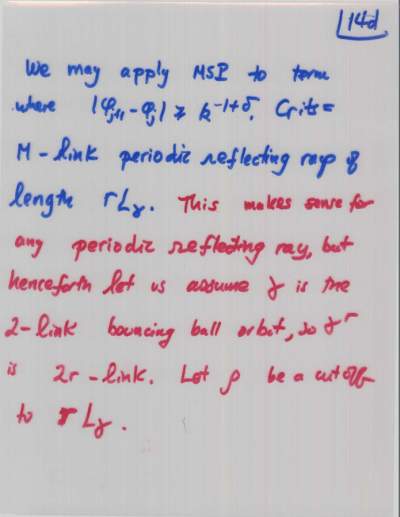 14d
We may apply MSP to term
where |φ_{j+1} - φ_j| ≥ k^{-1+δ}. Crits =
M-link periodic reflecting rays of
length rL_γ. This makes sense for
any periodic reflecting ray, but
henceforth let us assume γ is the
2-link bouncing ball orbit, so γ^r
is 2r-link. Let ρ be a cutoff
to rL_γ.